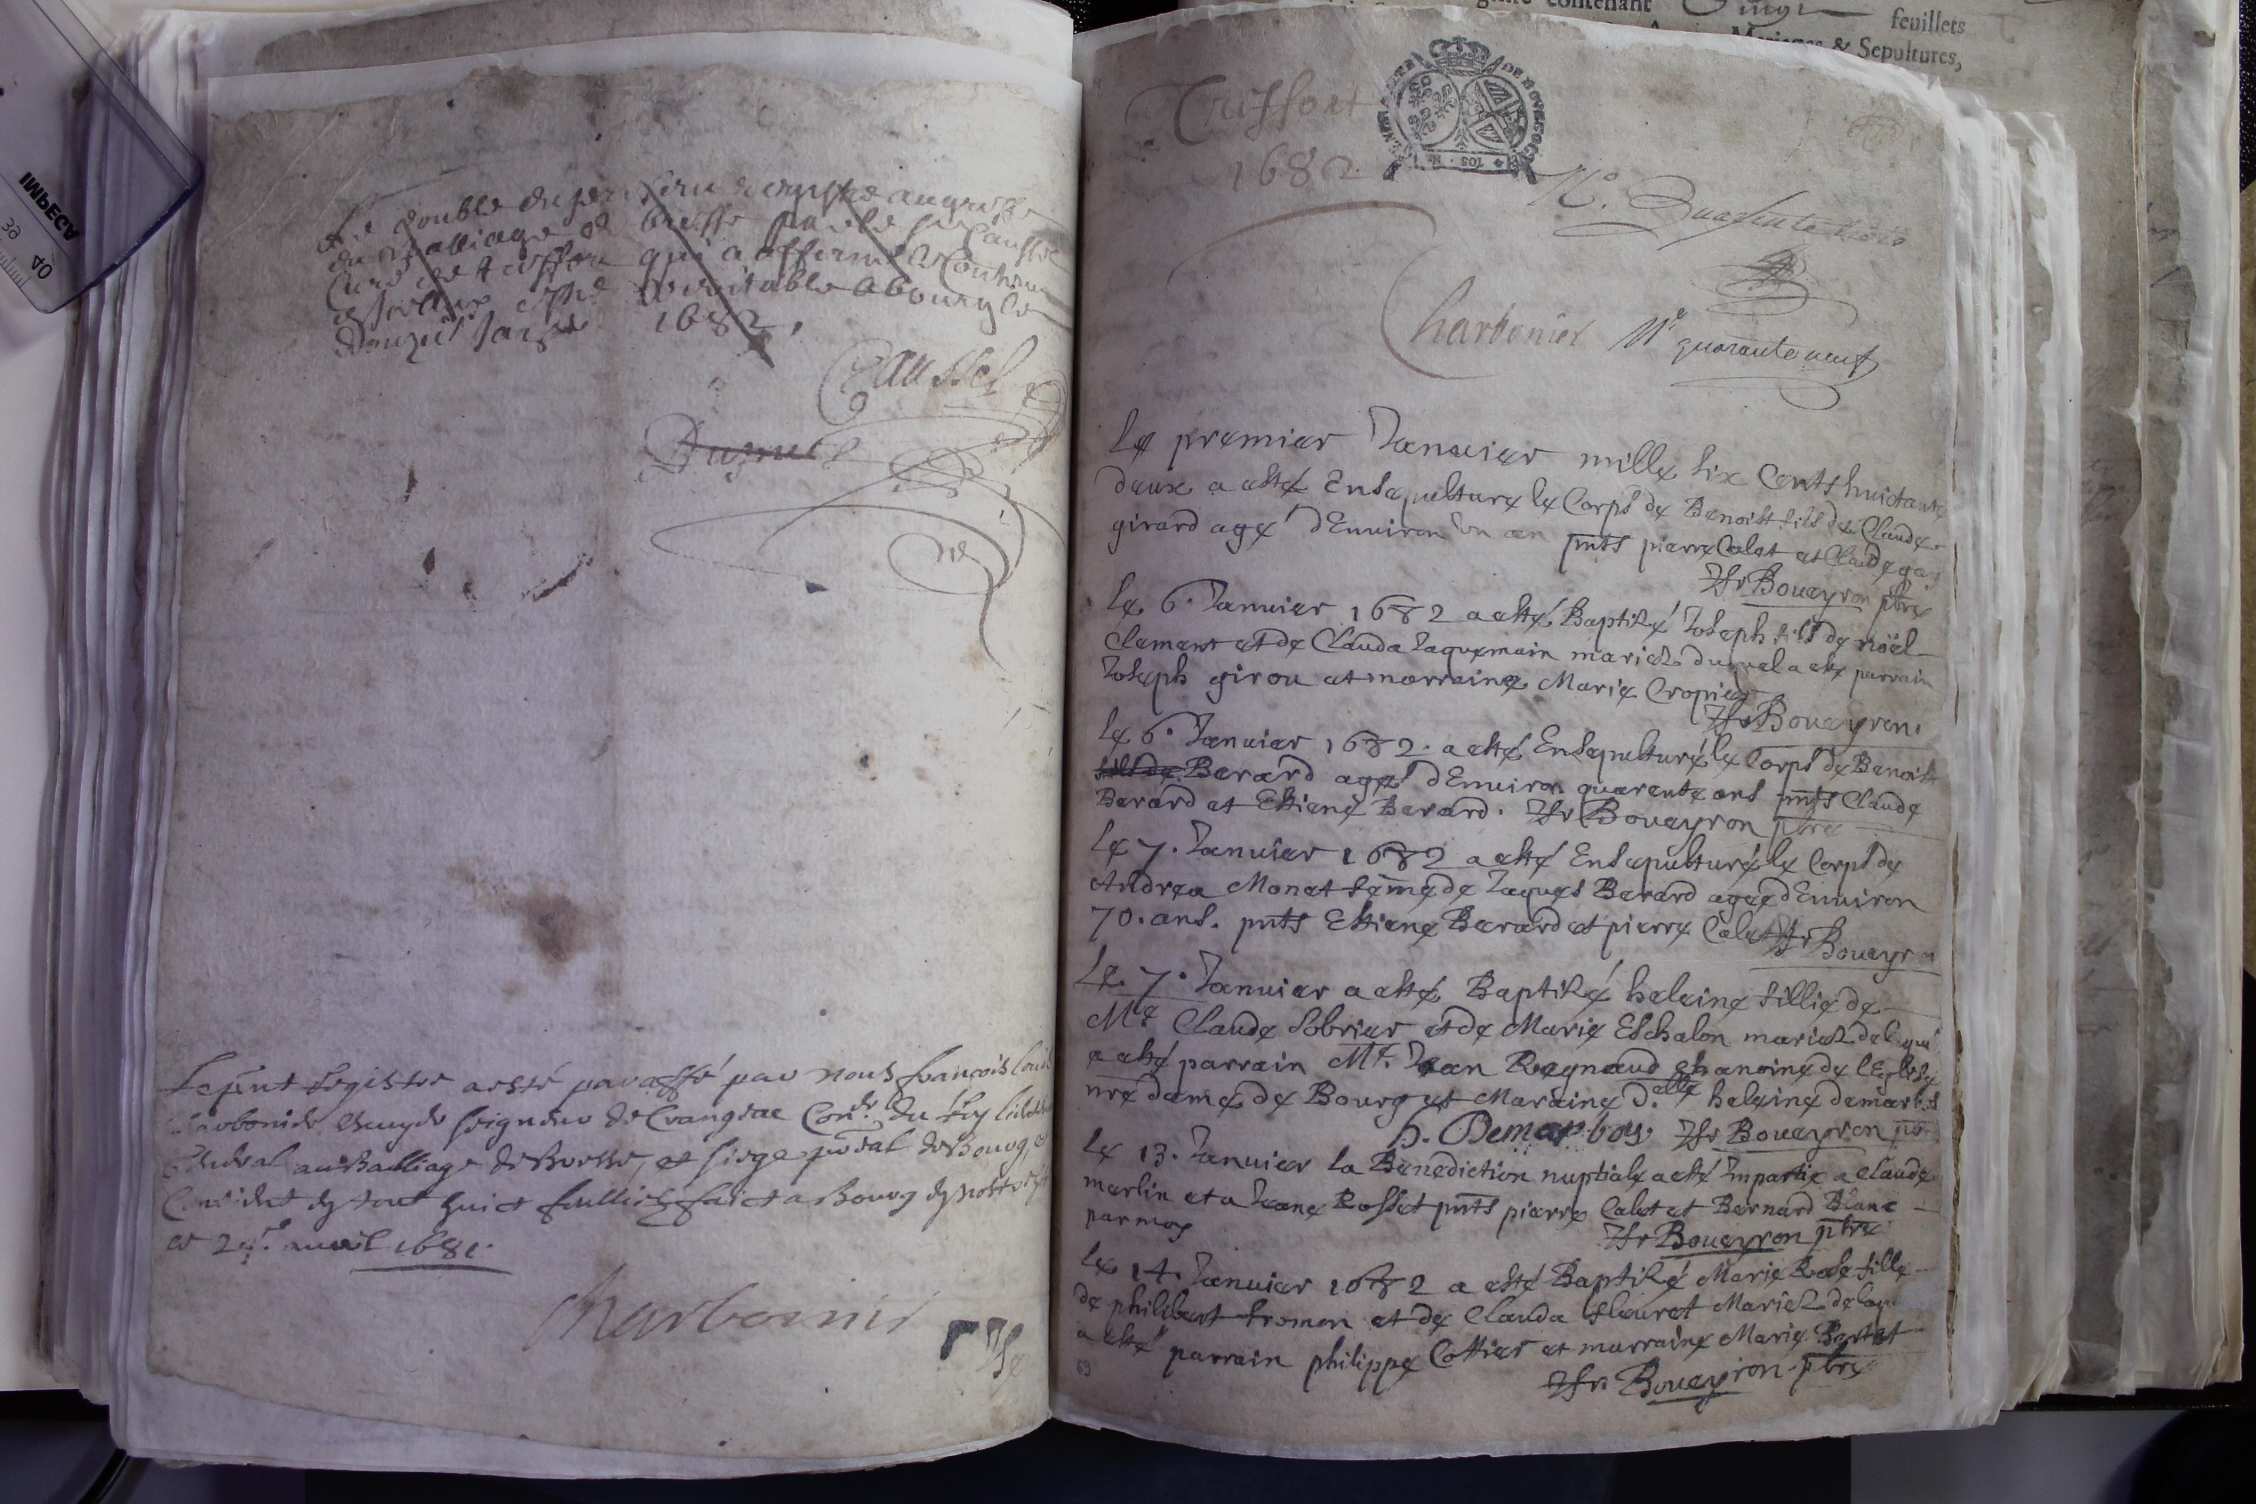 Le double du
du Balliage de Bresse par le Sr Caussel
Curé de qui a affirmé le Contenu
veritable a bourg le
1682.
Caussel
Le pnt Registre a esté paraffé par nous françois Louis
Charbonier Escuyer seigneur de Crangeac Conr du Roy Lieutenant
General au Balliage de Bresse, et siege pndal de Bourg, et
Contient en tout huict fait a Bourg en nostre
ce avril 1681.
Charbonier
feuillets
Mariages & Sepultures,
Treffort
1682
No. Quarante
Charbonier No quarante neuf
Le premier Januier mille six Cents huictante
deux a esté Ensepulturé le Corps de Benoist fils de Claude
girard agé d'Enuiron vn an pnts pierre Calet et Claude
Boueyron pbre
Le 6. Januier 1682 a esté Baptizé Joseph fils de noël
Clement et de Clauda Jaquemain mariez duquel a este parrain
Joseph girou et marraine Marie Cropier
Boueyron
Le 6. Januier 1682. a esté Ensepulturé le Corps de Benoist
fils de Berard agé d'Enuiron quarente ans pnts Claude
Berard et Estiene Berard. Boueyron pbre
Le 7. Januier 1682 a esté Ensepulturé le Corps de
Andrea Monet feme de Jaques Berard agée d'Enuiron
70. ans. pnts Estiene Berard et pierre Calet Boueyron
Le 7. Januier a esté Baptizé heleine fillie de
Me Claude Sobrier et de Marie Eschalon mariez delaqu
a esté parrain Mr. Jean Regnaud chanoine de l'Eglise
nre dame de Bourg et Maraine D.elle heleine demarbos
h. Demarbos Boueyron pbre
Le 13. Januier la Benediction nuptiale a esté Impartie a Claude
marlin et a Jeane Rosset pnts pierre Calet et Bernard Blanc
par moy Boueyron pbre
Le 14. Januier 1682 a esté Baptizé Marie Rose fille
de philibert fromen et de Clauda fleuret Mariez delaqu
a esté parrain philippe Cottier et marraine Marie Bertet
Boueyron pbre